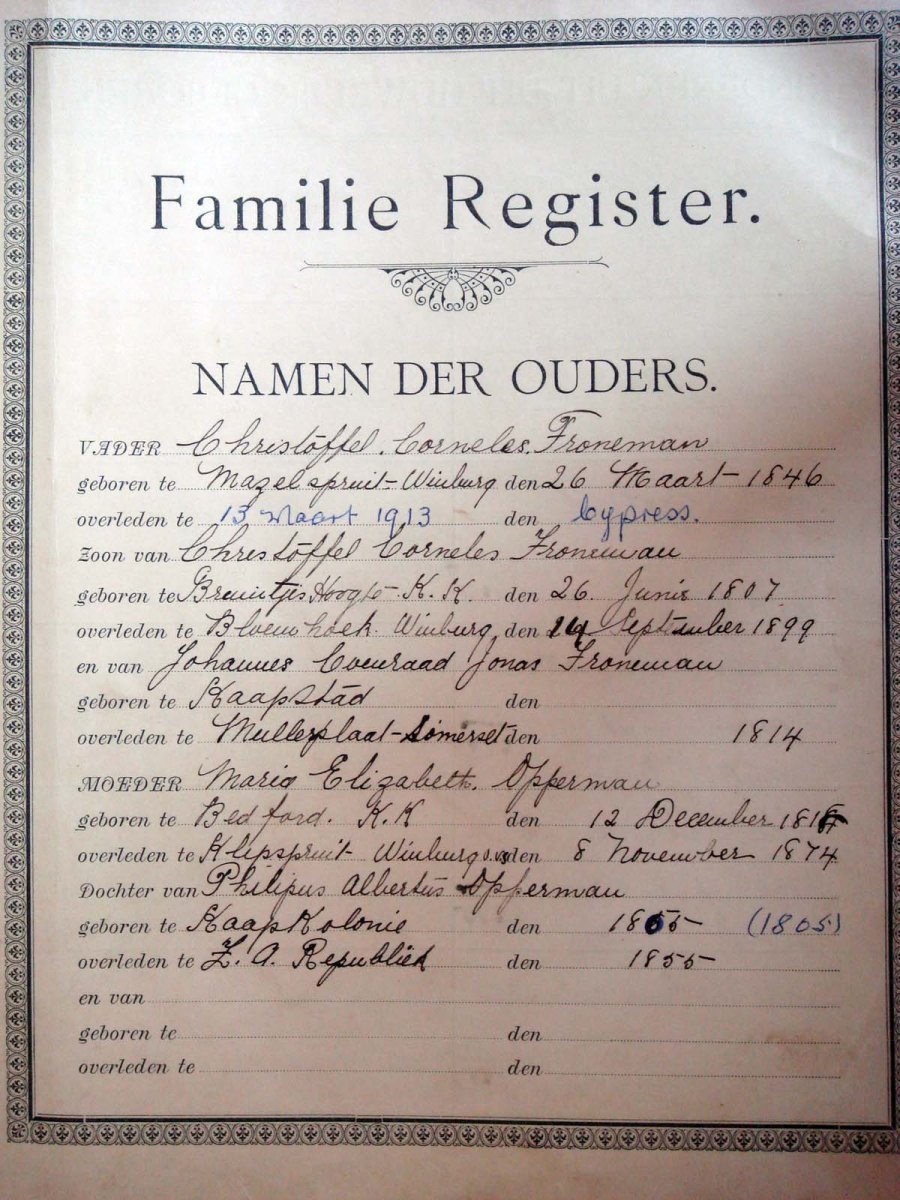 Familie Register.
NAMEN DER OUDERS.
VADER Christoffel. Corneles. Froneman
geboren te Mazelspruit-Winburg den 26 Maart- 1846
overleden te 13 Maart 1913 den Cypress.
Zoon van Christoffel Corneles Froneman
geboren te Bruintjes Hoogte- K. K. den 26. Junie 1807
overleden te Bloemhoek Winburg, den 14 September 1899
en van Johannes Coenraad Jonas Froneman
geboren te Kaapstad den
overleden te Mullerplaat-Somerset den 1814
MOEDER Maria Elizabeth. Opperman
geboren te Bedford. K.K den 12 December
overleden te Klipspruit- Winburg den 8 November 1874
Dochter van Philipus Albertus Opperman
geboren te Kaap Kolonie den 1805 (1805)
overleden te Z. A. Republiek den 1855
en van
geboren te den
overleden te den